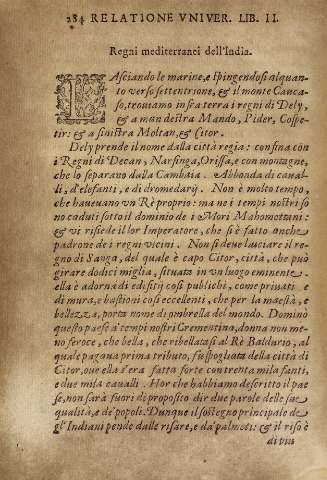 284 RELATIONE VNIVER. LIB. II.
Regni mediterranei dell'India.
LAsciando le marine, e spingendosi alquan-
to verso settentrione, & il monte Cauca-
so, trouiamo infra terra i regni di Dely,
& a man destra Mando, Pider, Cospe-
tir: & a sinistra Moltan, & Citor.
Dely prende il nome dalla città regia: confina con
i Regni di Decan, Narsinga, Orissa, e con montagne,
che lo separano dalla Cambaia. Abbonda di caual-
li, d'elefanti, e di dromedarij. Non è molto tempo,
che haueuano vn Rè proprio: ma ne i tempi nostri so
no caduti sotto il dominio de i Mori Mahomettani:
& vi risiede il lor Imperatore, che si è fatto anche
padrone de i regni vicini. Non si deue lasciare il re-
gno di Sanga, del quale è capo Citor, città, che può
girare dodici miglia, situata in vn luogo eminente.
ella è adorna di edifitij così publici, come priuati e
di mura, e bastioni così eccellenti, che per la maestà, e
bellezza, porta nome di ombrella del mondo. Dominò
questo paese a' tempi nostri Crementina, donna non me-
no feroce, che bella, che ribellatasi al Rè Baldurio, al
quale pagaua prima tributo, fu spogliata della città di
Citor, oue ella s'era fatta forte con trenta mila fanti,
e due mila caualli. Hor che habbiamo descritto il pae
se, non sarà fuori di proposito dir due parole delle sue
qualità, e de' popoli. Dunque il sostegno principale de
gl'Indiani pende dalle risare, e da' palmeti: & il riso è
di più